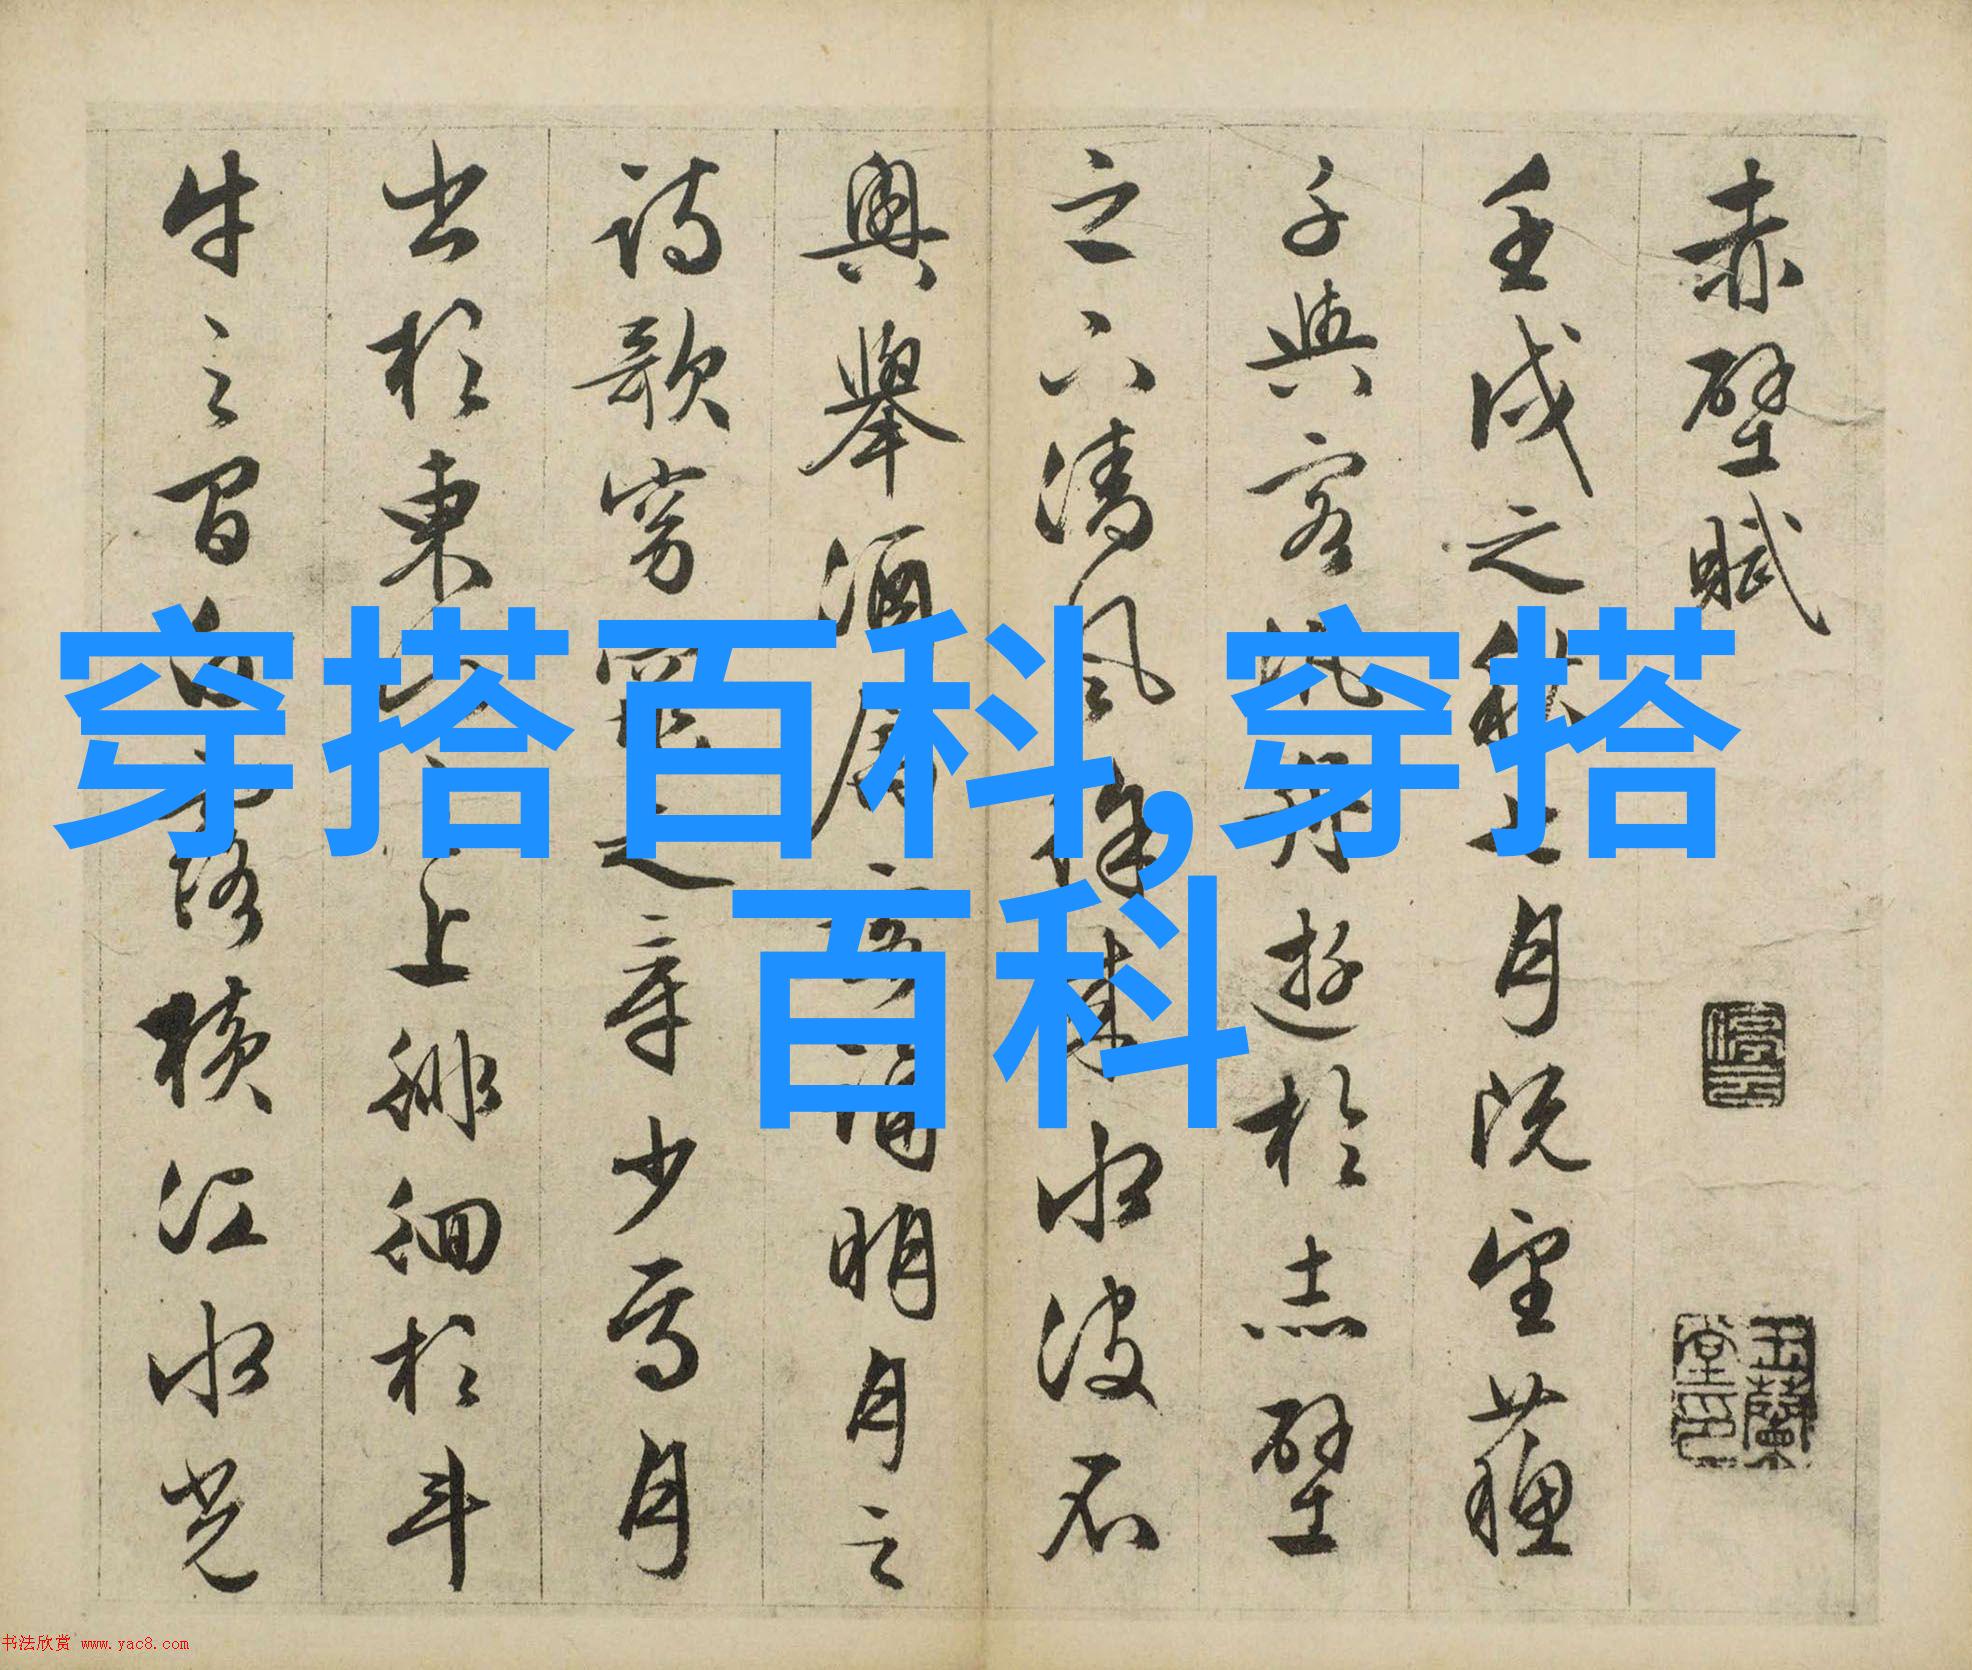 赤壁賦
壬戌之秋七月既望蘇
子與客汎舟遊於赤壁
之下清風徐來水波不
興舉酒屬客誦明月之
詩歌窈窕之章少焉月
出於東山之上徘徊於斗
牛之間白露橫江水光
停雲
玉蘭堂印
穿搭百科,穿搭
百科
书法欣赏 www.yac8.com